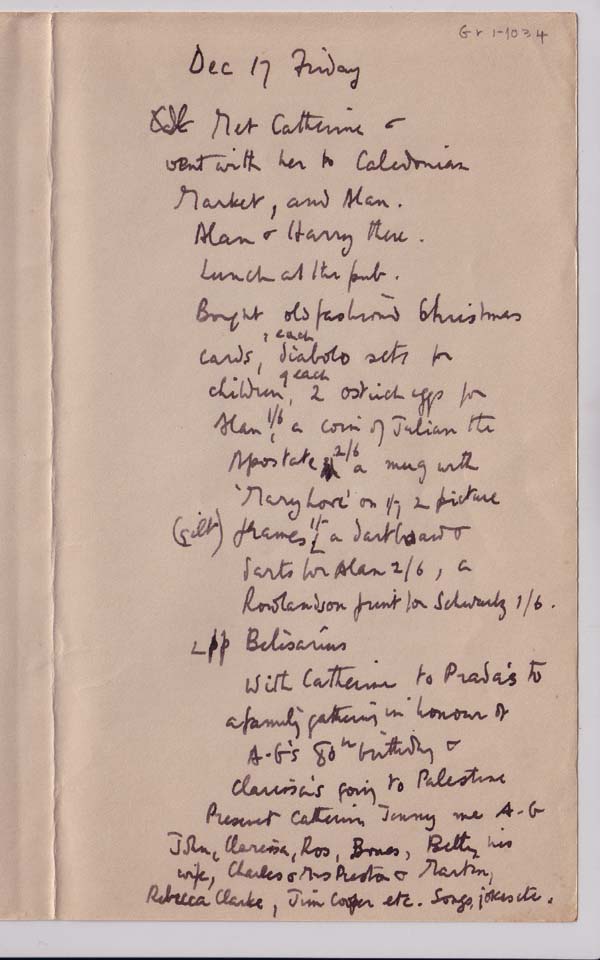 Gr 1-1034
Dec 17 Friday
Met Catherine &
went with her to Caledonian
Market, and Alan.
Alan & Harry there.
Lunch at the pub.
Bought old fashiond Christmas
each
cards, diabolo sets for
9 each
children, 2 ostrich eggs for
Alan 1/6 a coin of Julian the
Apostate 2/6 a mug with
'Mary Love' on 1/3 2 picture
(gilt) frames 1/- a dartboard &
darts for Alan 2/6, a
Rowlandson print for Schwartz 1/6.
2 pp Belisarius
With Catherine to Prada's to
a family gathering in honour of
A-G's 80th birthday &
Clarissa's going to Palestine
Present Catherine Jenny me A-G
John, Clarissa, Ros, Bones, Betty his
wife, Charles & Mrs Preston & Martin,
Rebecca Clarke, Jim Cooper etc. Songs, jokes etc.